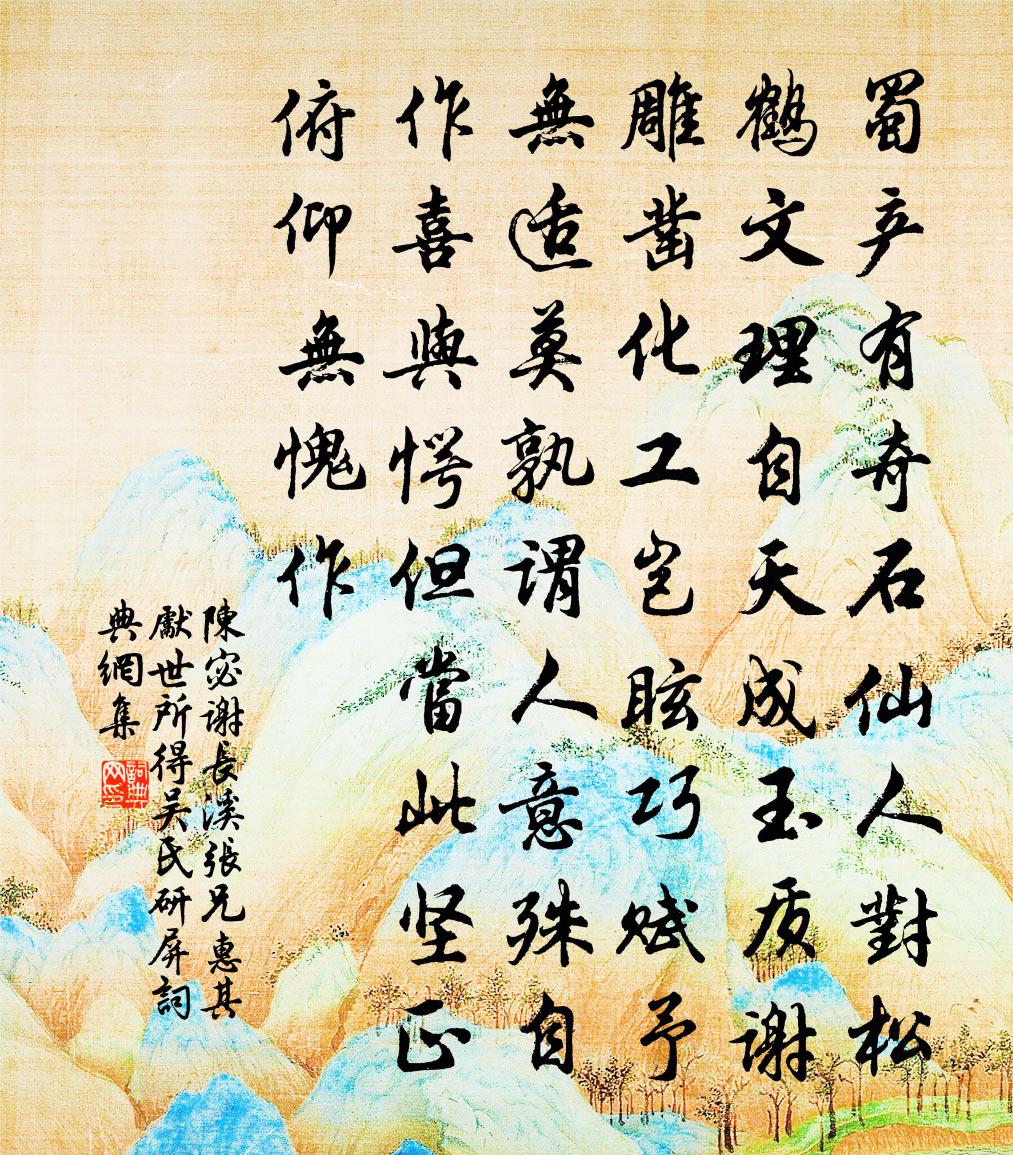 蜀产有奇石仙人對松
鶴文理自天成玉质謝
雕凿化工岂眩巧赋予
無适莫孰謂人意殊自
作喜與愕但當此坚正
俯仰無愧作
陳宓謝長溪張兄惠其
獻世所得吴氏研屏詞
典網集
詞典网印